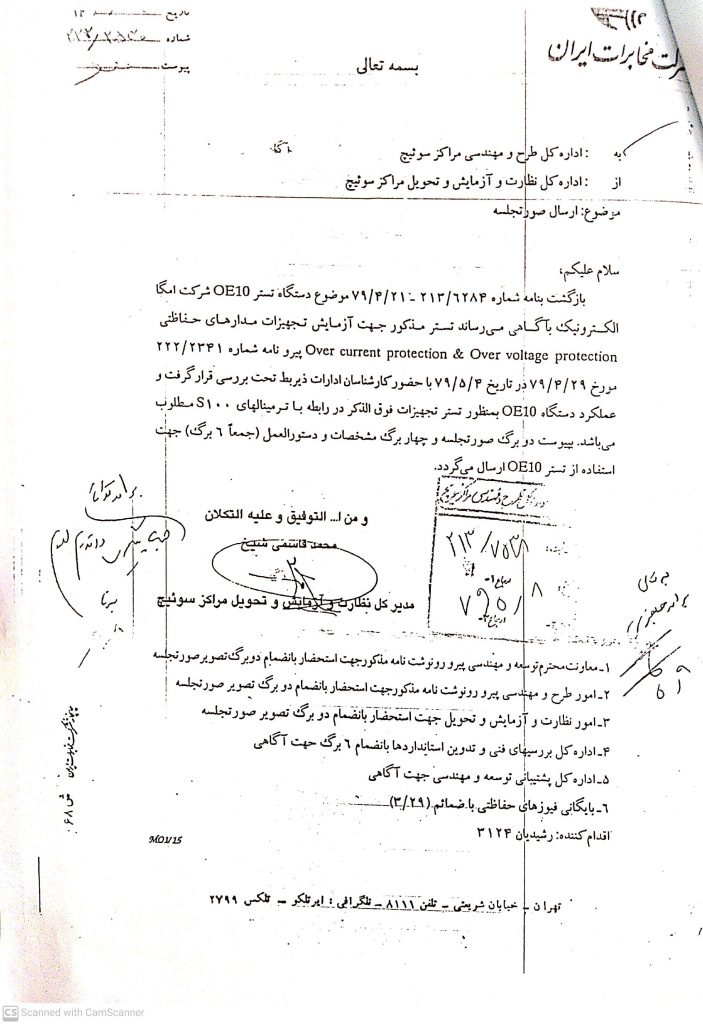 شرکت مخابرات ایران
بسمه تعالی
تاریخ
شماره
پیوست
به : اداره کل طرح و مهندسی مراکز سوئیچ
از : اداره کل نظارت و آزمایش و تحویل مراکز سوئیچ
موضوع: ارسال صورتجلسه
سلام علیکم،
بازگشت بنامه شماره ۲۱۳/۶۲۸۴ ـ ۷۹/۴/۲۱ موضوع دستگاه تستر OE10 شرکت امگا
الکترونیک بآگاهی می‌رساند تستر مذکور جهت آزمایش تجهیزات مدارهای حفاظتی
Over current protection & Over voltage protection پیرو نامه شماره ۲۲۲/۲۳۴۱
مورخ ۷۹/۴/۲۹ در تاریخ ۷۹/۵/۴ با حضور کارشناسان ادارات ذیربط تحت بررسی قرار گرفت و
عملکرد دستگاه OE10 بمنظور تستر تجهیزات فوق الذکر در رابطه با ترمینالهای S۱۰۰ مطلوب
می‌باشد. بپیوست دو برگ صورتجلسه و چهار برگ مشخصات و دستورالعمل (جمعاً ۶ برگ) جهت
استفاده از تستر OE10 ارسال می‌گردد.
و من ا... التوفیق و علیه التکلان
محمد قاسمی شیخ
مدیر کل نظارت و آزمایش و تحویل مراکز سوئیچ
۲۱۳/۷۵۳۸
۱ـ معاونت محترم توسعه و مهندسی پیرو رونوشت نامه مذکور جهت استحضار بانضمام دو برگ تصویر صورتجلسه
۲ـ امور طرح و مهندسی پیرو رونوشت نامه مذکور جهت استحضار بانضمام دو برگ تصویر صورتجلسه
۳ـ امور نظارت و آزمایش و تحویل جهت استحضار بانضمام دو برگ تصویر صورتجلسه
۴ـ اداره کل بررسیهای فنی و تدوین استانداردها بانضمام ۶ برگ جهت آگاهی
۵ـ اداره کل پشتیبانی توسعه و مهندسی جهت آگاهی
۶ـ بایگانی فیوزهای حفاظتی با ضمائم (۳/۲۹)
اقدام کننده: رشیدیان ۳۱۲۴
MO1/15
تهران ـ خیابان شریعتی ـ تلفن ۸۱۱۱ ـ تلگرافی : ایرتلکو ـ تلکس ۲۷۹۹
CS Scanned with CamScanner